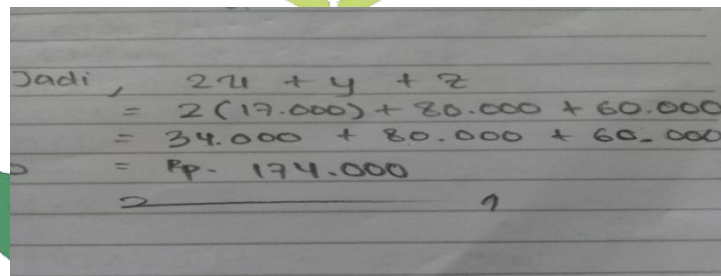 Jadi, 2x + y + z
= 2(17.000) + 80.000 + 60.000
= 34.000 + 80.000 + 60.000
= Rp. 174.000